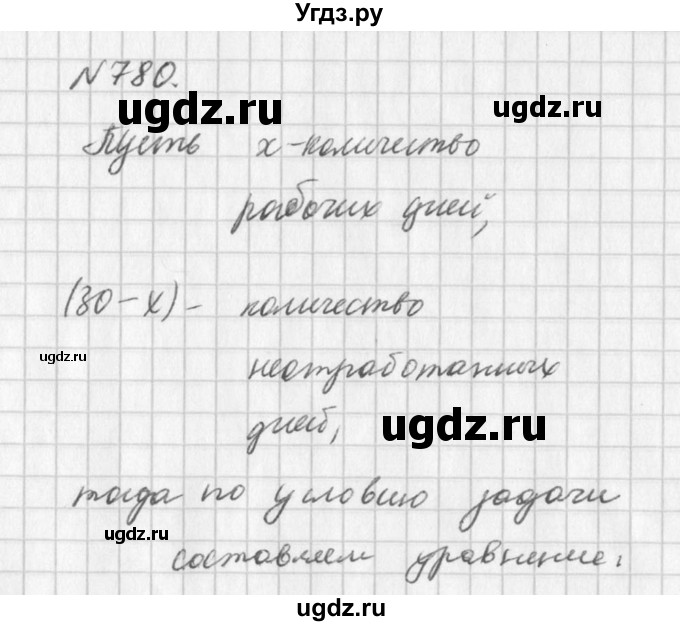 Угдз.ру
N 780.
ugdz.ru
ugdz.ru
Пусть x - количество
рабочих дней,
(30 - x) - количество
ugdz.ru
неотработанных
дней,
ugdz.ru
тогда по условию задачи
ugdz.ru
составляем уравнение:
ugdz.ru